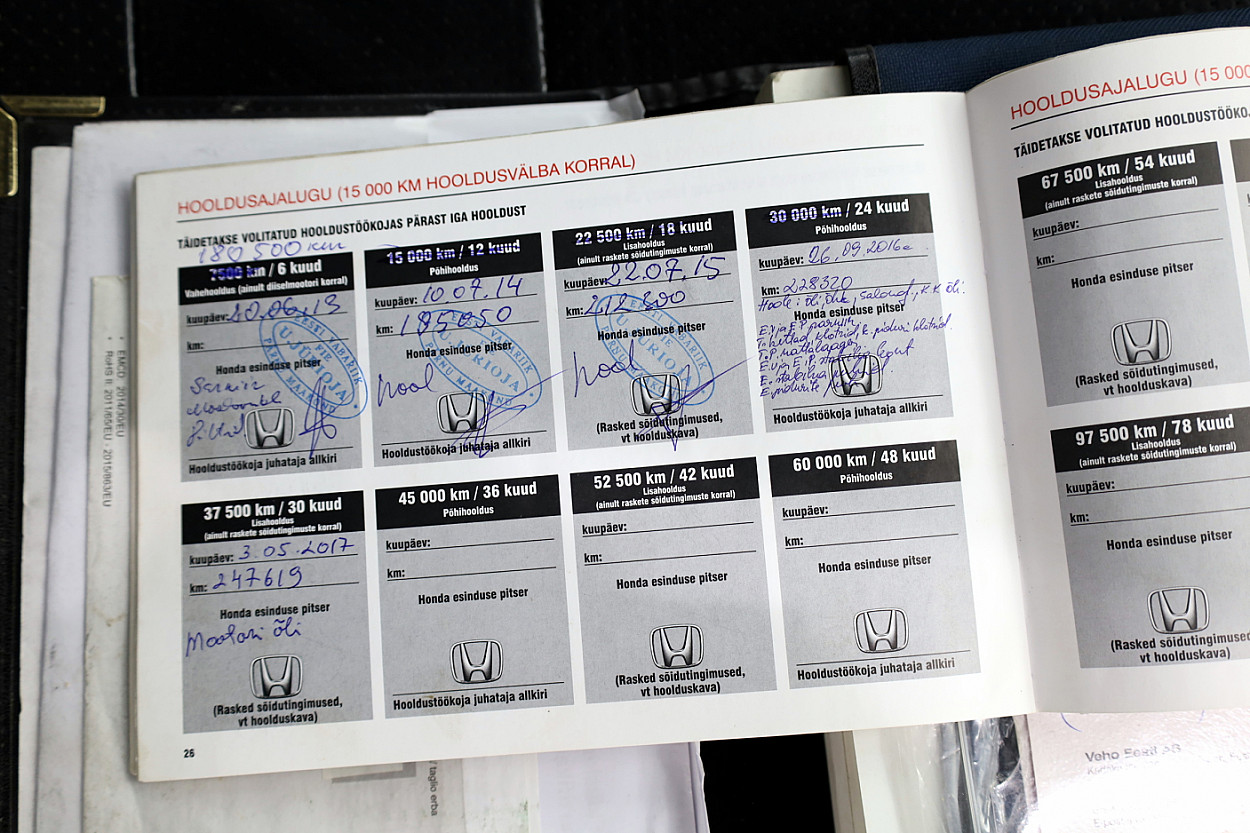 HOOLDUSAJALUGU (15 000 KM HOOLDUSVÄLBA KORRAL)
TÄIDETAKSE VOLITATUD HOOLDUSTÖÖKOJAS PÄRAST IGA HOOLDUST
180 500 km
7500 km / 6 kuud
Vahehooldus (ainult diiselmootori korral)
kuupäev: 10.06.13
km:
Honda esinduse pitser
EESTI VABARIIK
FIE
U. JÜRIOJA
PÄRNU MAAKOND
Hooldustöökoja juhataja allkiri
15 000 km / 12 kuud
Põhihooldus
kuupäev: 10.07.14
km: 195050
Honda esinduse pitser
hool
EESTI VABARIIK
FIE
U. JÜRIOJA
PÄRNU MAAKOND
Hooldustöökoja juhataja allkiri
22 500 km / 18 kuud
Lisahooldus
(ainult raskete sõidutingimuste korral)
kuupäev: 22.07.15
km: 212300
Honda esinduse pitser
hool
(Rasked sõidutingimused,
vt hoolduskava)
30 000 km / 24 kuud
Põhihooldus
kuupäev: 26.09.2016a.
km: 228320
Hoole: õli, õhk, salong.,
Honda esinduse pitser
Hooldustöökoja juhataja allkiri
37 500 km / 30 kuud
Lisahooldus
(ainult raskete sõidutingimuste korral)
kuupäev: 3.05.2017
km: 247619
Honda esinduse pitser
Mootori õli
(Rasked sõidutingimused,
vt hoolduskava)
45 000 km / 36 kuud
Põhihooldus
kuupäev:
km:
Honda esinduse pitser
Hooldustöökoja juhataja allkiri
52 500 km / 42 kuud
Lisahooldus
(ainult raskete sõidutingimuste korral)
kuupäev:
km:
Honda esinduse pitser
(Rasked sõidutingimused,
vt hoolduskava)
60 000 km / 48 kuud
Põhihooldus
kuupäev:
km:
Honda esinduse pitser
Hooldustöökoja juhataja allkiri
26
HOOLDUSAJALUGU (15 00
TÄIDETAKSE VOLITATUD HOOLDUSTÖÖKO
67 500 km / 54 kuud
Lisahooldus
(ainult raskete sõidutingimuste korral)
kuupäev:
km:
Honda esinduse pitser
(Rasked sõidutingimused,
vt hoolduskava)
97 500 km / 78 kuud
Lisahooldus
(ainult raskete sõidutingimuste korral)
kuupäev:
km:
Honda esinduse pitser
(Rasked sõidutingimused,
vt hoolduskava)
• EMCD 2014/30/EU
• RoHS II: 2011/65/EU - 2015/863/EU
/ taglio erba
Veho Eesti AS